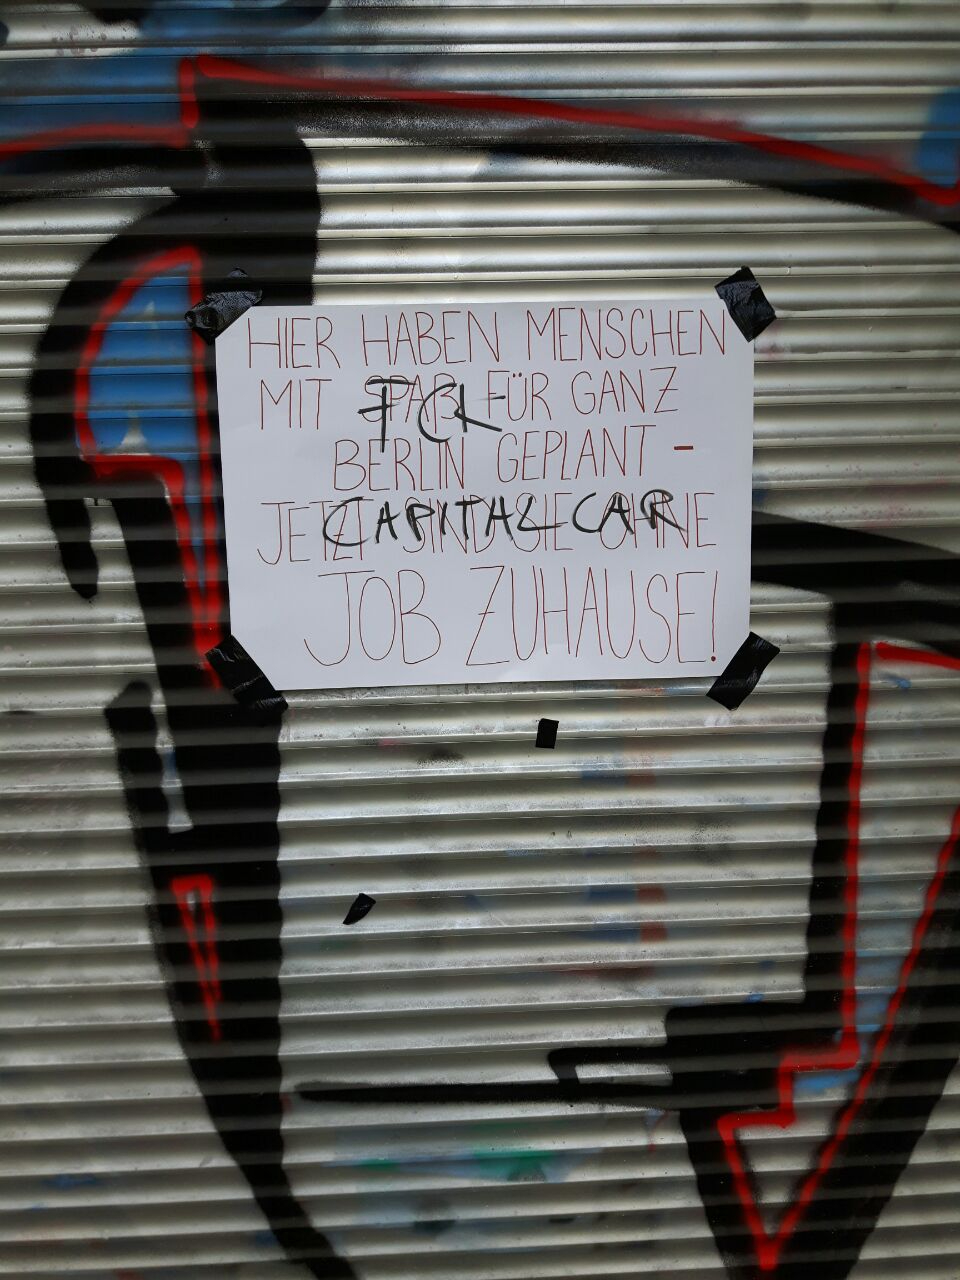 HIER HABEN MENSCHEN
MIT SPAß FÜR GANZ
FCK
BERLIN GEPLANT -
JETZT SIND SIE OHNE
CAPITAL CAR
JOB ZUHAUSE!